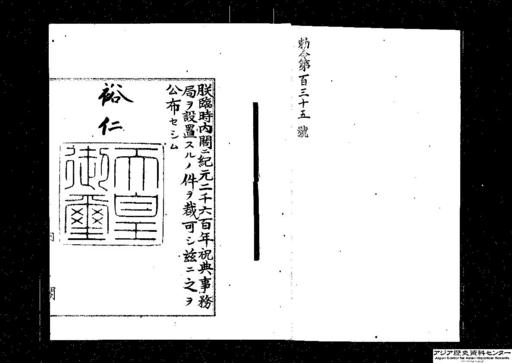 勅令第百三十五號
朕臨時内閣ニ紀元二千六百年祝典事務
局ヲ設置スルノ件ヲ裁可シ玆ニ之ヲ
公布セシム
裕仁
天皇
御璽
内閣
アジア歴史資料センター
Japan Center for Asian Historical Records